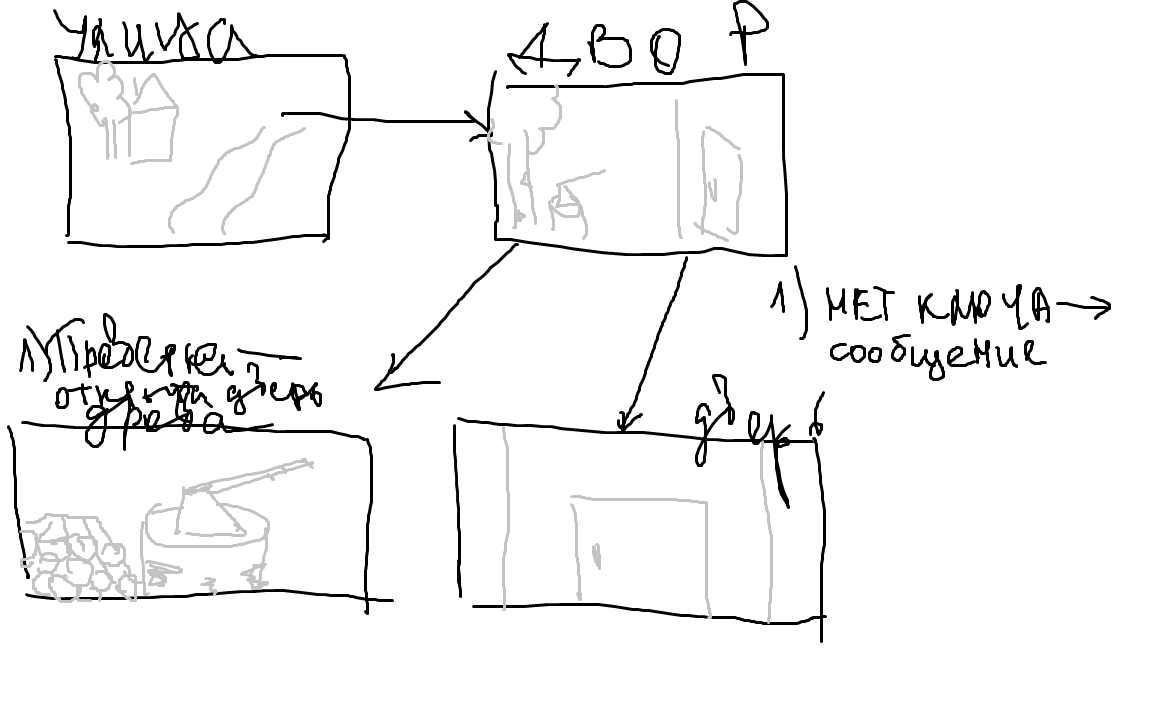 УЛИЦА
ДВОР
1) НЕТ КЛЮЧА →
сообщение
1) Проверка —
открыта дверь
дрова
дверь